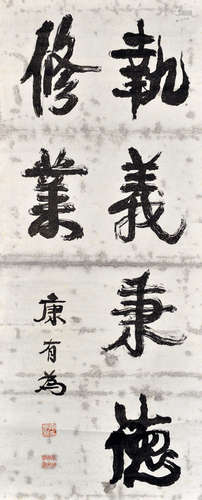 執義秉德
修業
康有為